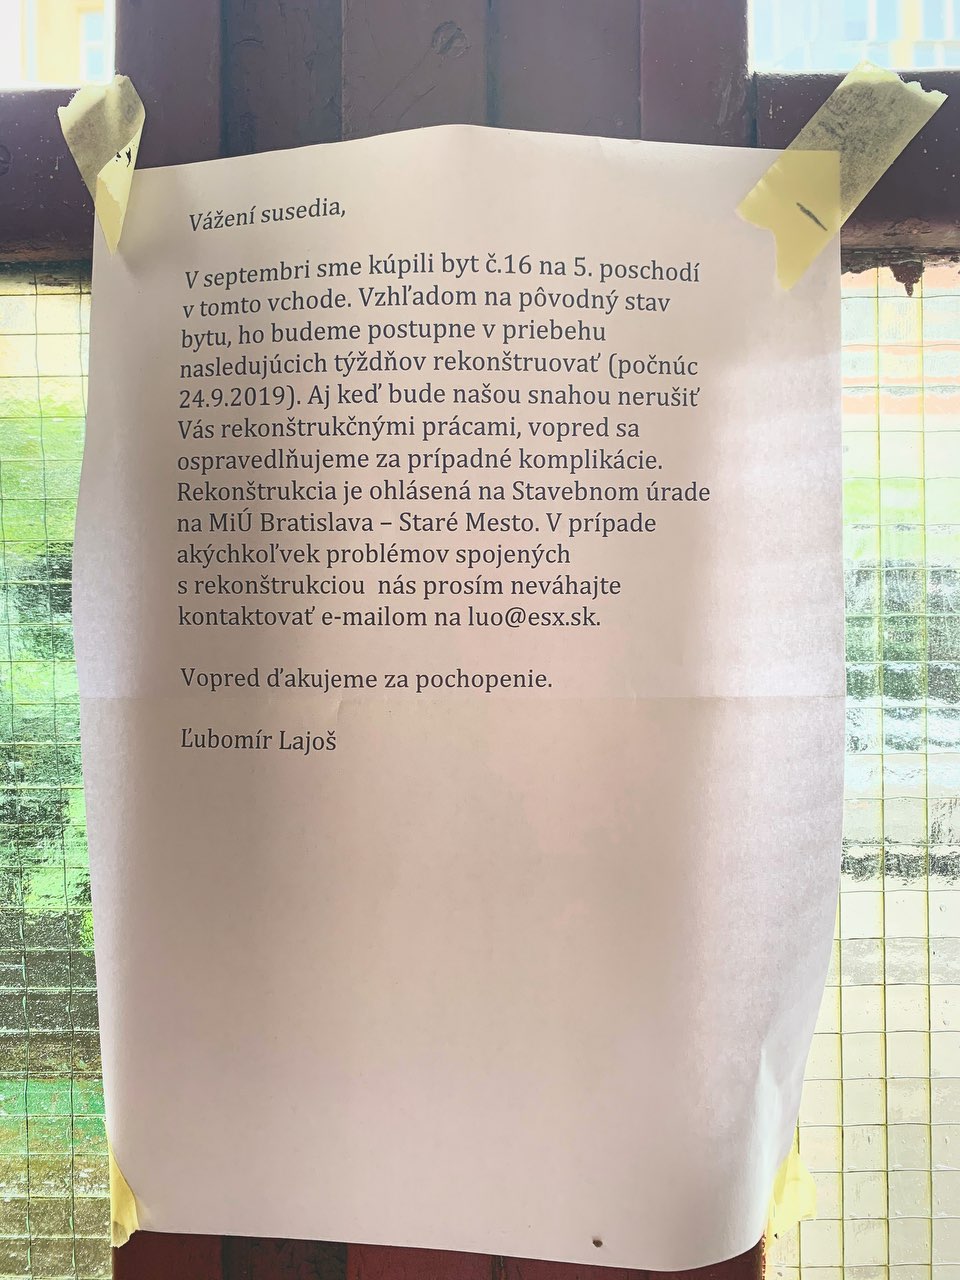 Vážení susedia,
V septembri sme kúpili byt č.16 na 5. poschodí
v tomto vchode. Vzhľadom na pôvodný stav
bytu, ho budeme postupne v priebehu
nasledujúcich týždňov rekonštruovať (počnúc
24.9.2019). Aj keď bude našou snahou nerušiť
Vás rekonštrukčnými prácami, vopred sa
ospravedlňujeme za prípadné komplikácie.
Rekonštrukcia je ohlásená na Stavebnom úrade
na MiÚ Bratislava – Staré Mesto. V prípade
akýchkoľvek problémov spojených
s rekonštrukciou  nás prosím neváhajte
kontaktovať e-mailom na luo@esx.sk.
Vopred ďakujeme za pochopenie.
Ľubomír Lajoš